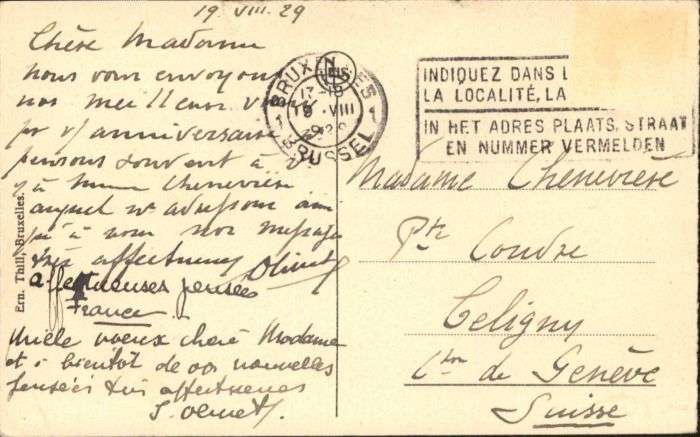 19 VIII. 29
Chère Madame
nous vous envoyons
nos meilleurs vœux
pr v/ anniversaire
pensons souvent à v
& à Chenevière
auquel ns adressons ainsi
à vous nos messages
très affectueux Olivet
affectueuses pensées
France.
Mille vœux chère Madame
et à bientôt de vos nouvelles
pensées très affectueuses
J. Olivet
Ern. Thill, Bruxelles.
BRUXELLES
1 1
19 VIII
BRUSSEL
INDIQUEZ DANS L
LA LOCALITÉ, LA
IN HET ADRES PLAATS, STRAAT
EN NUMMER VERMELDEN
Madame Chenevière
Pte Coudre
Celigny
Cton de Genève
Suisse